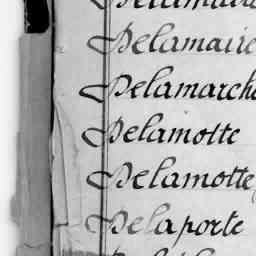 Delamaire
Delamarche
Delamotte
Delamotte
Delaporte